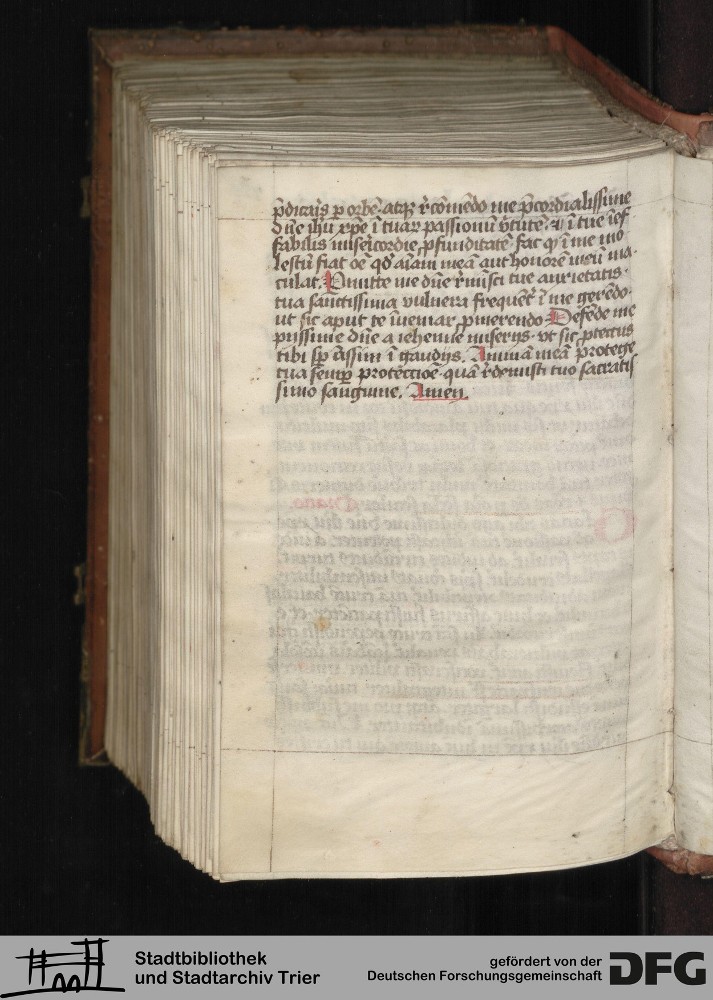 p̄dicat͛s p orbē. atq̃ r̄cōmēdo me p̄cordialissime
dn̄e ih̄u xp̄e ī tuaꝝ passionū v̄tutē. ⁊ ī tue īef
fabilis misericordie ꝓfunditatē. fac qͥ ī me mo
lestū fiat oē qd̛ aīam meā aut honorē meū ma-
culat. Dimitte me dn̄e r̄minisci tue anxietatis.
tua sanctissima vulnera frequēt͛ ī me gerēdo.
ut sic aput te īueniar ꝓmerendo. Defēde me
piissime dn̄e a iehenne miserijs. vt sic ꝓtectus
tibi sp̄ assim ī gaudijs. Animā meā protege
tua semꝑ protēctioē. quā r̄demisti tuo sacratis
simo sanguine. Amen.
Stadtbibliothek
und Stadtarchiv Trier
gefördert von der
Deutschen Forschungsgemeinschaft
DFG